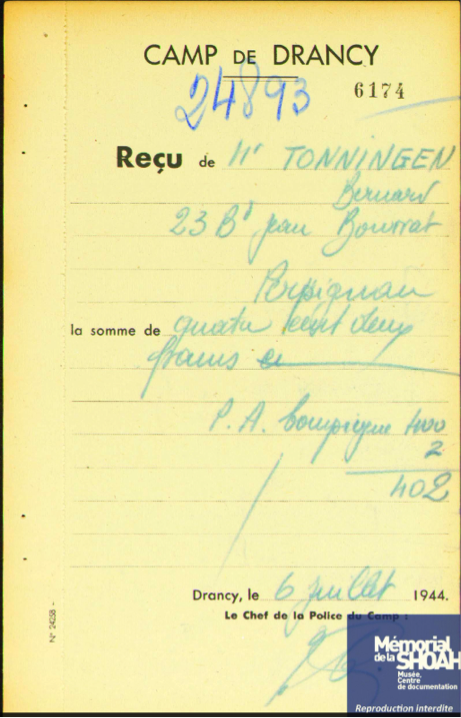 CAMP DE DRANCY
24893
6174
Reçu de Mr TONNINGEN
Bernard
23 Bd Jean Bourrat
Perpignan
la somme de quatre cent deux
francs
P. A. Compiegne 400
2
402
Drancy, le 6 juillet 1944.
Le Chef de la Police du Camp :
N° 24258 -
Mémorial
de la SHOAH
Musée,
Centre
de documentation
Reproduction interdite